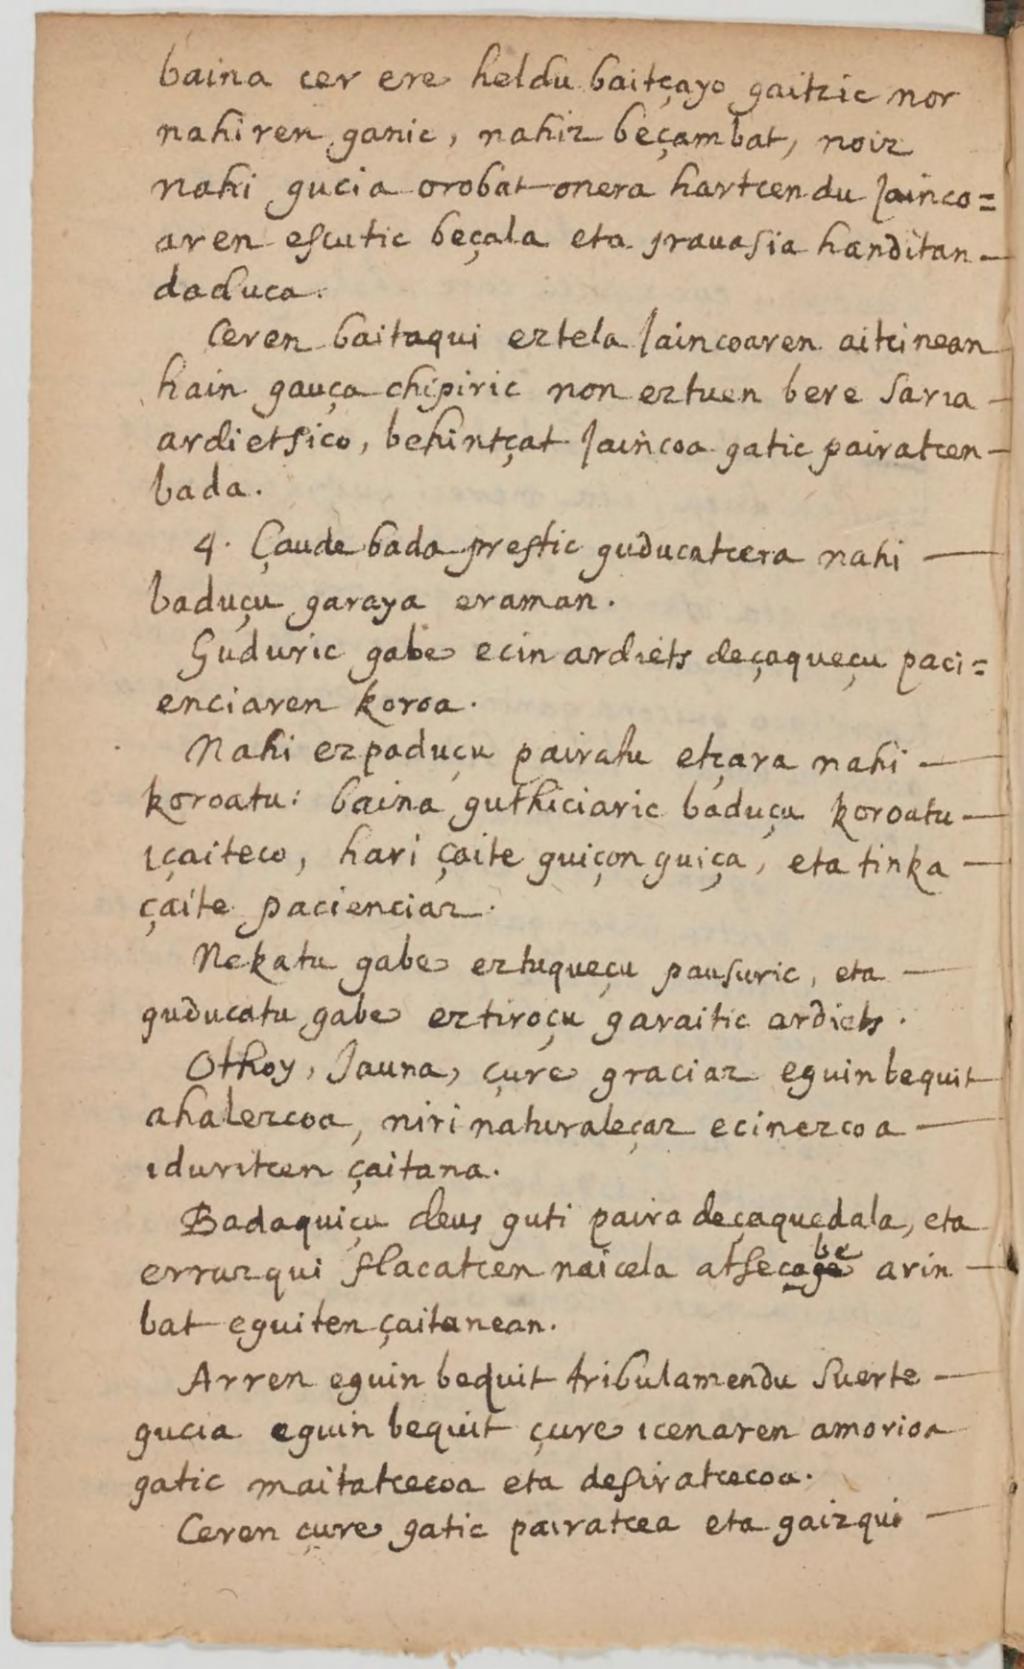 baina cer ere heldu baitçayo gaitzic nor
nahiren ganic, nahiz beçambat, noiz
nahi gucia orobat onera hartcen du Jainco=
aren escutic beçala eta irauasia handitan
daduca.
Ceren baitaqui eztela Jaincoaren aitcinean
hain gauça chipiric non eztuen bere saria
ardietsico, behintçat Jaincoa gatic pairatcen
bada.
4. Çaude bada prestic guducatcera nahi
baduçu garaya eraman.
Guduric gabe ecin ardiets deçaqueçu paci=
enciaren koroa.
Nahi ezpaduçu pairatu etçara nahi
koroatu: baina guthiciaric baduçu koroatu
içaiteco, hari çaite guiçon guiça, eta tinka
çaite pacienciaz.
Nekatu gabe eztuqueçu pausuric, eta
guducatu gabe eztiroçu garaitic ardiets.
Othoy, Jauna, çure graciaz eguin bequit
ahalezcoa, niri naturaleçaz ecinezcoa
iduritcen çaitana.
Badaquiçu deus guti paira deçaquedala, eta
errazqui flacatcen naicela atsecabe arin
bat eguiten çaitanean.
Arren eguin bequit tribulamendu suerte
gucia eguin bequit çure icenaren amorioa
gatic maitatcecoa eta desiratcecoa.
Ceren çure gatic pairatcea eta gaizqui